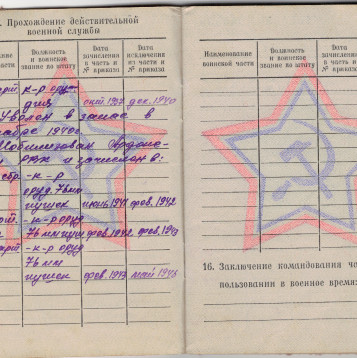 . Прохождение действительной
военной службы
ование
части
Должность
и воинское
звание по штату
Дата
зачисления
в часть и
№ приказа
Дата
исключения
из части и
№ приказа
к-р ору-
дия окт. 1937 дек. 1940
Уволен в запас в
1940г.
Мобилизован
РВК и зачислен в:
- к - р
оруд. 76мм
пушек июнь 1941 фев. 1942
- к-р оруд
76 мм пуш фев. 1942. фев. 1943
- к-р оруд
76 мм
пушек фев. 1943 май 1945
Наименование
воинской части
Должность
и воинское
звание по штату
Дата
зачисления
в часть и
№ приказа
16. Заключение командования ча
пользовании в военное время: